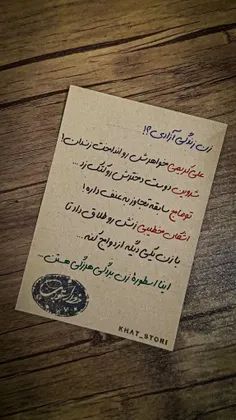 زن زندگی آزادی؟!
علی کریمی خواهرش رو انداخت زندان!
شروین دوست دخترش رو کتک زد...
توماج سابقه تجاوز به عنف داره!
اشکان خطیبی زنش رو طلاق داد تا
با زن یکی دیگه ازدواج کنه...
اینا اسطورهٔ زن بردگی هرزگی هستن..
KHAT_STORE